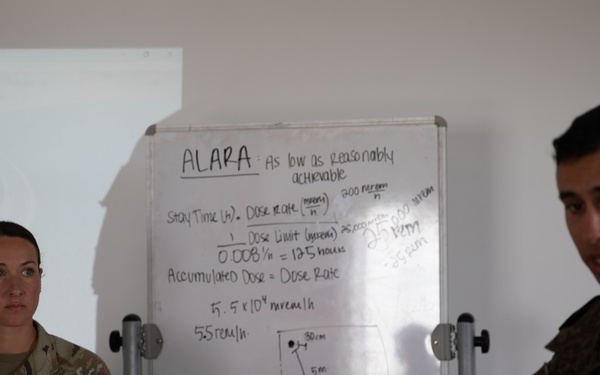 ALARA : As low as Reasonably
achievable
200 mrem/h
Stay Time (h) = Dose Rate (mrem/h)
Dose Limit (mrem) 25,000 mrem
25,000 mrem
25 rem
.25 rem
1/0.008 1/h = 125 hours
Accumulated Dose = Dose Rate
5.5 x 10⁴ mrem/h
55 rem/h
30cm
5m